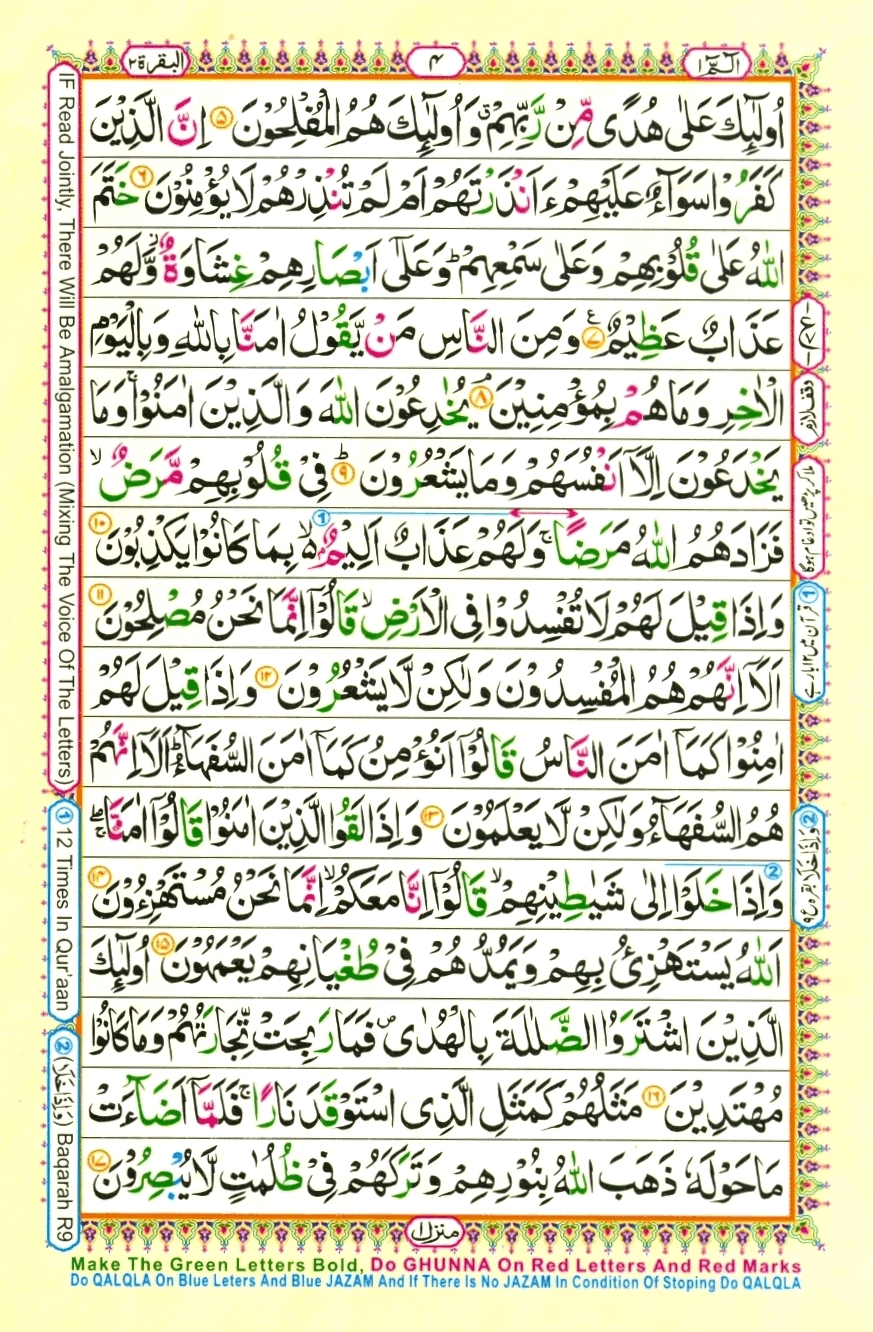 الٓمّٓ ١
٤
البقرة ٢
اُولٰٓئِكَ عَلٰى هُدًى مِّنْ رَّبِّهِمْ ۗ وَاُولٰٓئِكَ هُمُ الْمُفْلِحُوْنَ ۵ اِنَّ الَّذِيْنَ
كَفَرُوْا سَوَآءٌ عَلَيْهِمْ ءَاَنْذَرْتَهُمْ اَمْ لَمْ تُنْذِرْهُمْ لَا يُؤْمِنُوْنَ ۶ خَتَمَ
اللّٰهُ عَلٰى قُلُوْبِهِمْ وَعَلٰى سَمْعِهِمْ ؕ وَعَلٰٓى اَبْصَارِهِمْ غِشَاوَةٌ ۙ وَّلَهُمْ
عَذَابٌ عَظِيْمٌ ۷ وَمِنَ النَّاسِ مَنْ يَّقُوْلُ اٰمَنَّا بِاللّٰهِ وَبِالْيَوْمِ
الْاٰخِرِ وَمَا هُمْ بِمُؤْمِنِيْنَ ۘ ۸ يُخٰدِعُوْنَ اللّٰهَ وَالَّذِيْنَ اٰمَنُوْا ۚ وَمَا
يَخْدَعُوْنَ اِلَّاۤ اَنْفُسَهُمْ وَمَا يَشْعُرُوْنَ ؕ ۹ فِيْ قُلُوْبِهِمْ مَّرَضٌ ۙ
فَزَادَهُمُ اللّٰهُ مَرَضًا ۚ وَلَهُمْ عَذَابٌ اَلِيْمٌ ۢ ۙ بِمَا كَانُوْا يَكْذِبُوْنَ ۱۰
وَاِذَا قِيْلَ لَهُمْ لَا تُفْسِدُوْا فِى الْاَرْضِ ۙ قَالُوْٓا اِنَّمَا نَحْنُ مُصْلِحُوْنَ ۱۱
اَلَاۤ اِنَّهُمْ هُمُ الْمُفْسِدُوْنَ وَلٰكِنْ لَّا يَشْعُرُوْنَ ۱۲ وَاِذَا قِيْلَ لَهُمْ
اٰمِنُوْا كَمَاۤ اٰمَنَ النَّاسُ قَالُوْٓا اَنُؤْمِنُ كَمَاۤ اٰمَنَ السُّفَهَآءُ ؕ اَلَاۤ اِنَّهُمْ
هُمُ السُّفَهَآءُ وَلٰكِنْ لَّا يَعْلَمُوْنَ ۱۳ وَاِذَا لَقُوا الَّذِيْنَ اٰمَنُوْا قَالُوْٓا اٰمَنَّا ۖۚ
وَاِذَا خَلَوْا اِلٰى شَيٰطِيْنِهِمْ ۙ قَالُوْٓا اِنَّا مَعَكُمْ ۙ اِنَّمَا نَحْنُ مُسْتَهْزِءُوْنَ ۱۴
اَللّٰهُ يَسْتَهْزِئُ بِهِمْ وَيَمُدُّهُمْ فِيْ طُغْيَانِهِمْ يَعْمَهُوْنَ ۱۵ اُولٰٓئِكَ
الَّذِيْنَ اشْتَرَوُا الضَّلٰلَةَ بِالْهُدٰى ۪ فَمَا رَبِحَتْ تِّجَارَتُهُمْ وَمَا كَانُوْا
مُهْتَدِيْنَ ۱۶ مَثَلُهُمْ كَمَثَلِ الَّذِى اسْتَوْقَدَ نَارًا ۚ فَلَمَّاۤ اَضَآءَتْ
مَا حَوْلَهٗ ذَهَبَ اللّٰهُ بِنُوْرِهِمْ وَتَرَكَهُمْ فِيْ ظُلُمٰتٍ لَّا يُبْصِرُوْنَ ۱۷
وقف لازم
ملا کر پڑھیں تو ادغام ہوگا
① قرآن میں ۱۲ بار ہے
② وَاِذَا خَلَا بقرہ ع ۹
IF Read Jointly, There Will Be Amalgamation (Mixing The Voice Of The Letters)
① 12 Times In Qur'aan
② (وَاِذَا خَلَا) Baqarah R9
منزل ١
Make The Green Letters Bold, Do GHUNNA On Red Letters And Red Marks
Do QALQLA On Blue Leters And Blue JAZAM And If There Is No JAZAM In Condition Of Stoping Do QALQLA